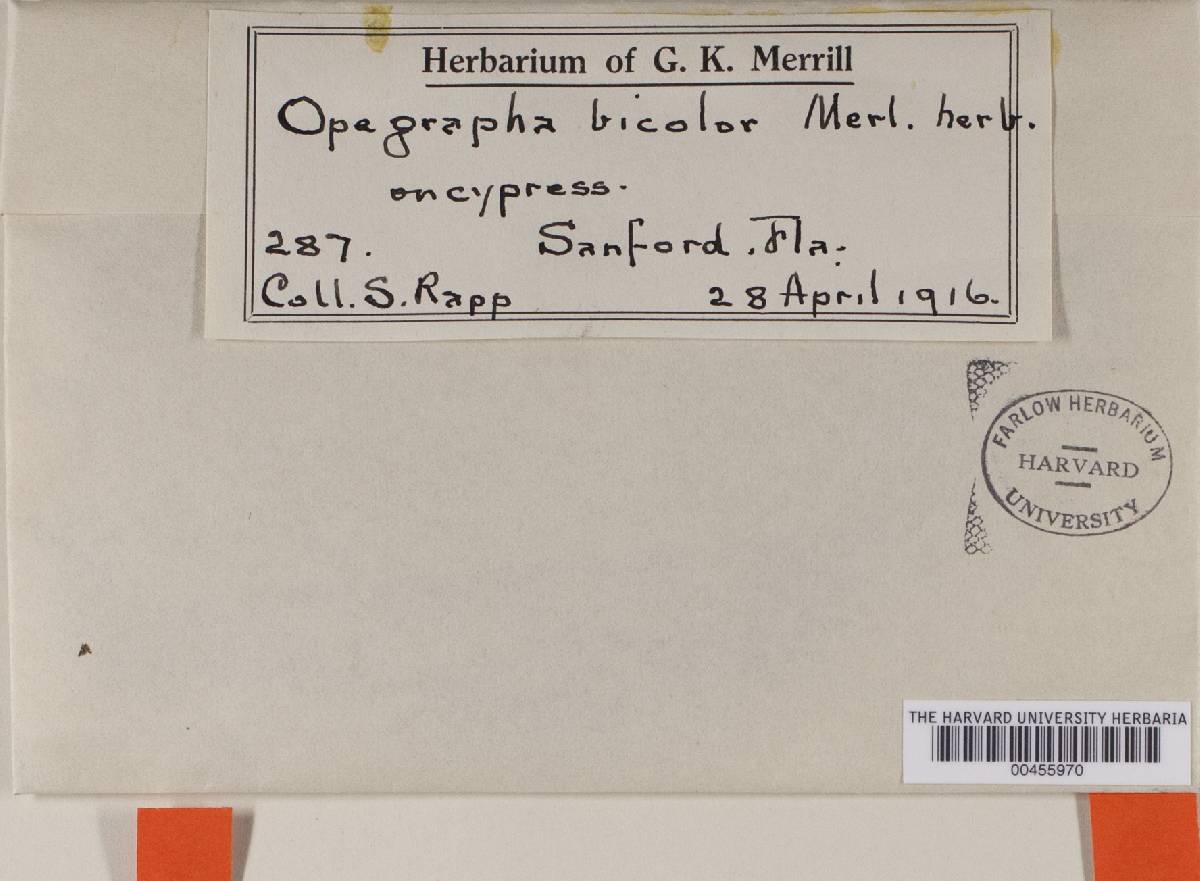 Herbarium of G. K. Merrill
Opegrapha bicolor Merl. herb.
on cypress.
287. Sanford. Fla.
Coll. S. Rapp 28 April 1916.
FARLOW HERBARIUM
HARVARD
UNIVERSITY
THE HARVARD UNIVERSITY HERBARIA
00455970